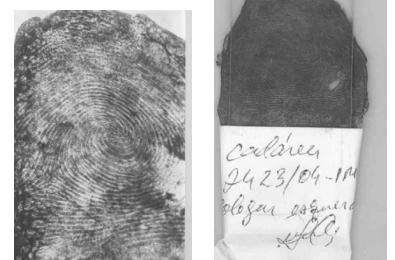 cadáver
2423/04-IM
polegar esquerd